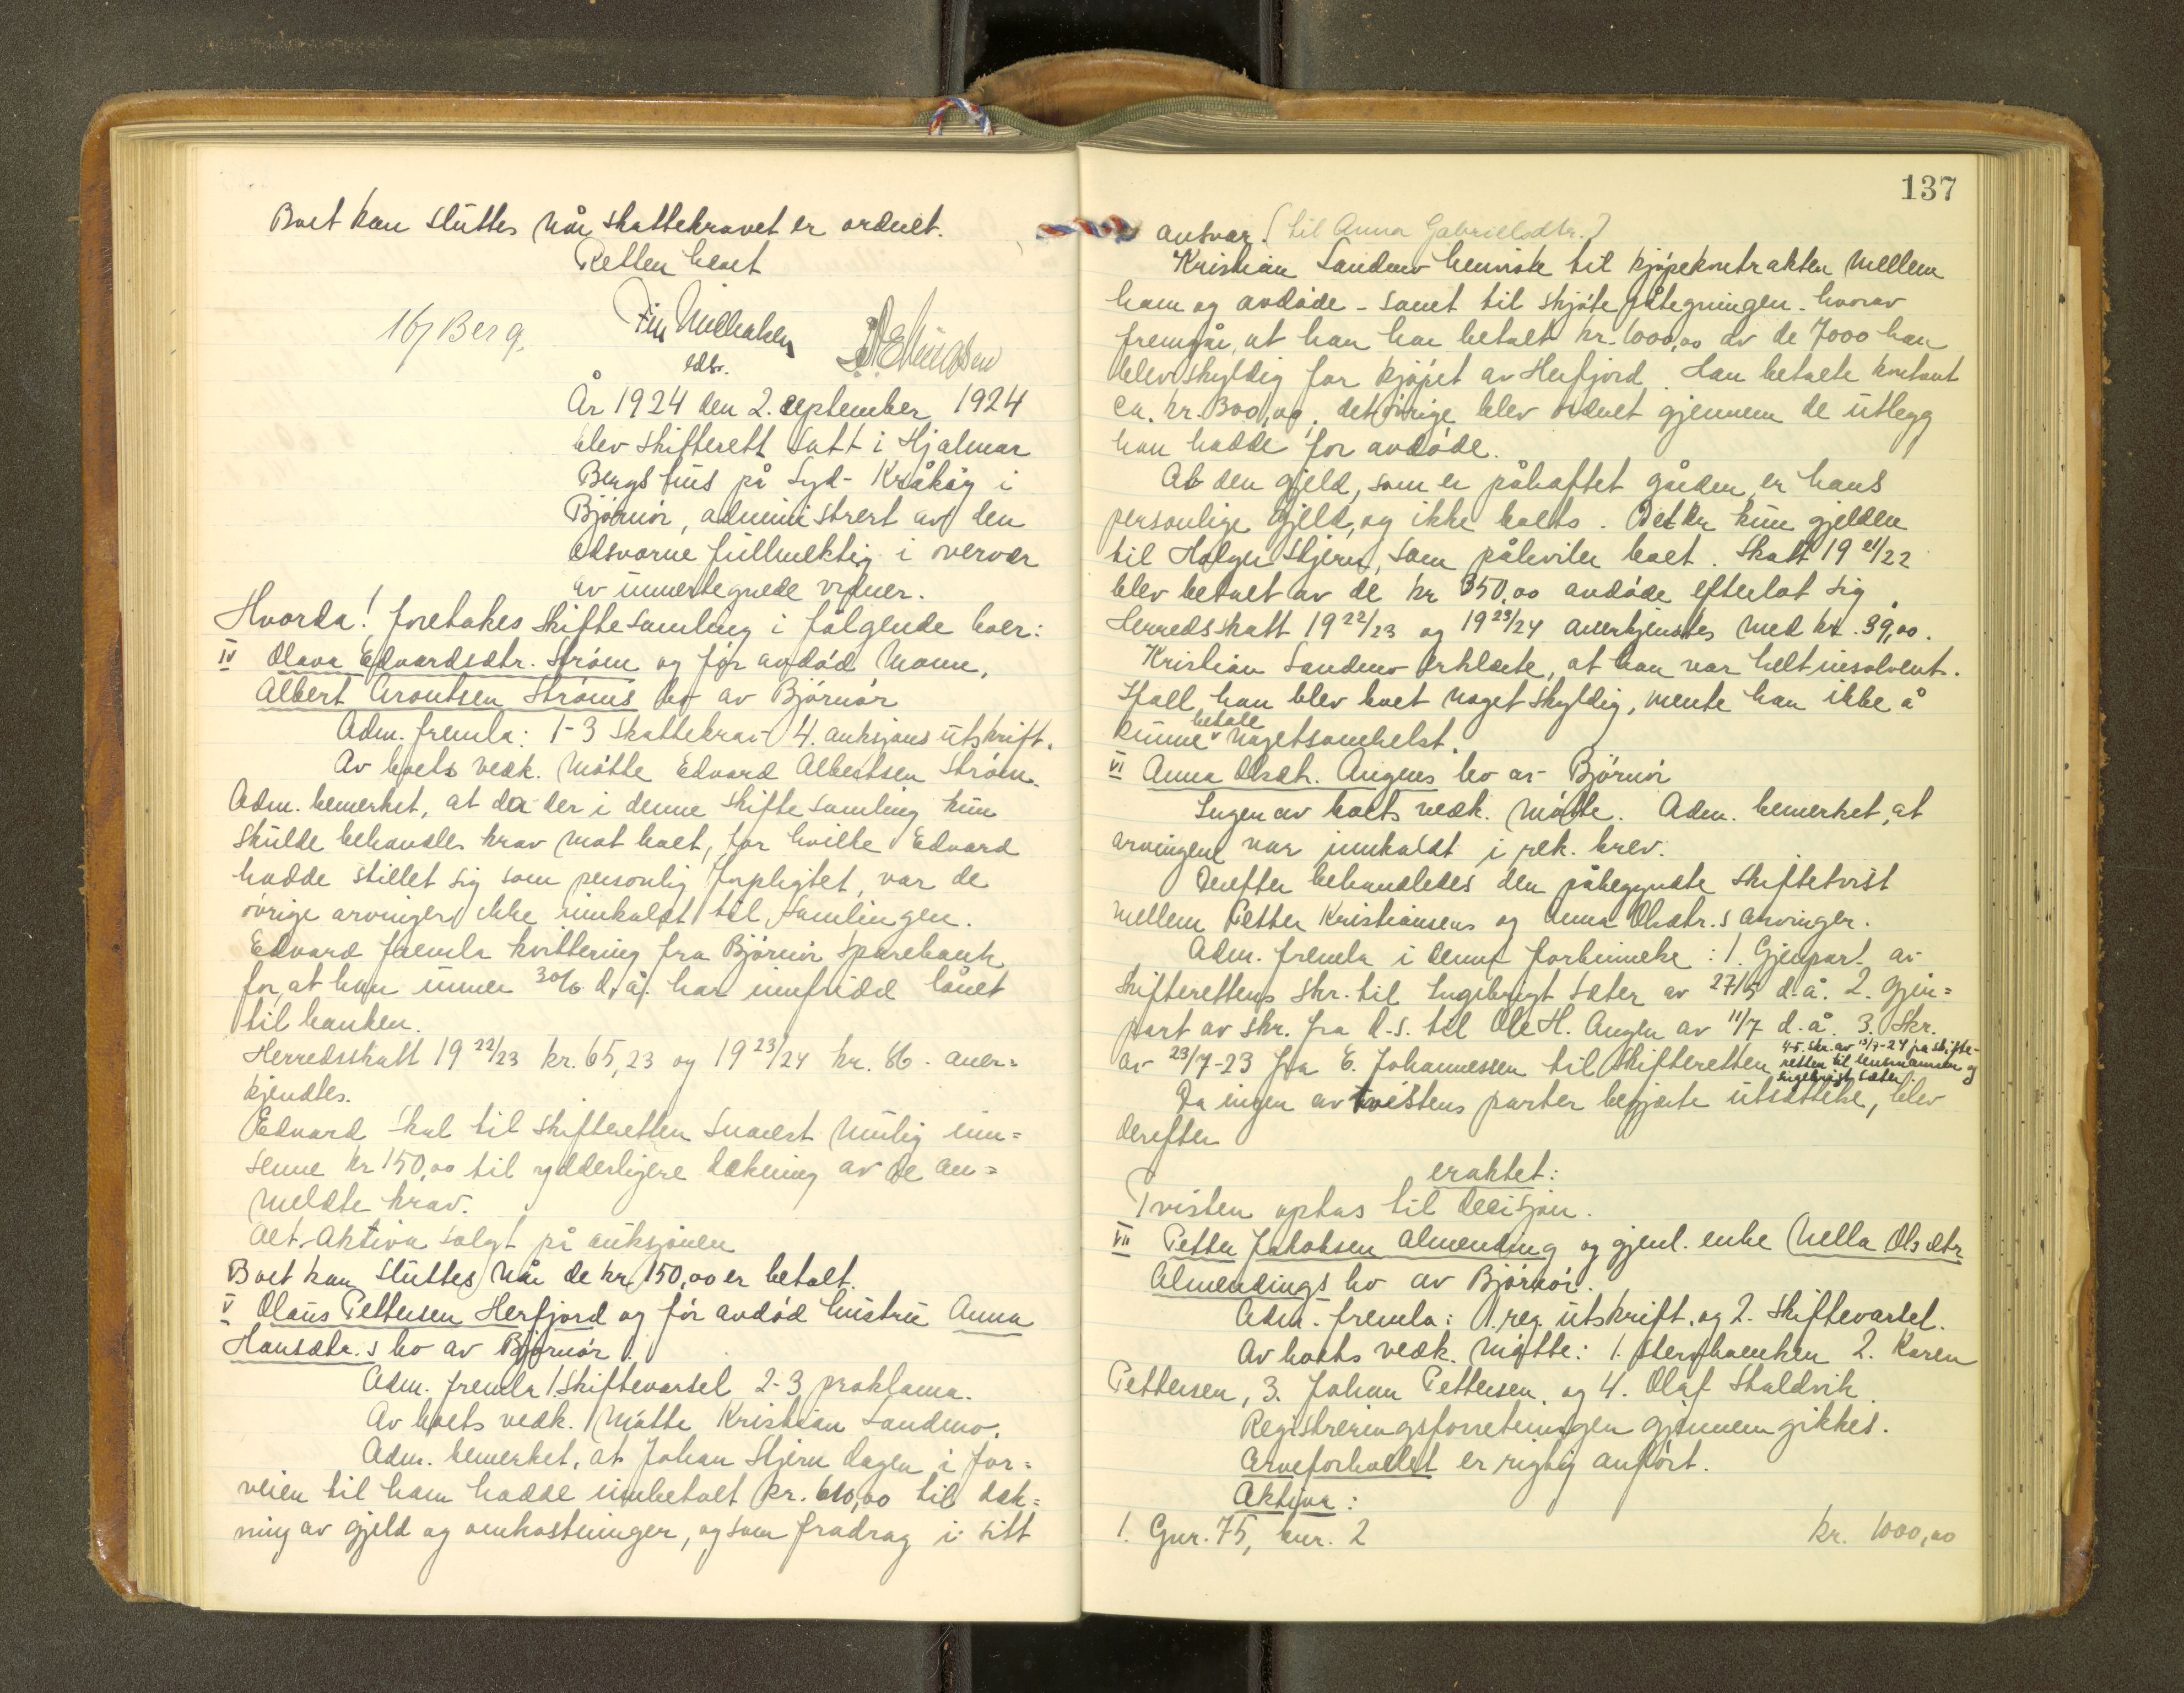 Boet kan sluttes når skattekravet er ordnet.
Retten hevet
Fin Michalsen
16/ Berg.
edsv.
År 1924 den 2. september 1924
blev skifterett satt i Hjalmar
Bergs hus på Syd-Kråköy i
Björnör, administrert av den
edsvorne fullmektig i overvær
av unnertegnede vidner.
Hvorda! foretokes skiftesamling i fölgende boer:
IV Olava Edvardsdtr. Ström og för avdöd mann,
Albert Arontsen Ströms bo av Björnör
Adm. fremla: 1-3 skattekrav 4. auksjonsutskrift.
Av boets vedk. mötte Edvard Albertsen Ström.
Adm. bemerket, at da der i denne skiftesamling kun
skulde behandles krav mot boet, for hvilke Edvard
hadde stillet sig som personlig forpligtet, var de
övrige arvinger ikke innkaldt til samlingen.
Edvard fremla kvittering fra Björnör Sparebank
for, at han unner 30/6 d.å. har innfridd lånet
til banken.
Herredsskatt 19 22/23 kr. 65,23 og 19 23/24 kr. 86.- aner=
kjendtes.
Edvard skal til skifteretten snarest mulig inn=
senne kr 150,00 til ydderligere dekning av de an=
meldte krav.
Alt aktiva solgt på auksjonen
Boet kan sluttes når de kr. 150,00 er betalt.
V Olaus Pettersen Herfjord og för avdöd hustru Anna
Hansdtr.s bo av Björnör.
Adm. fremla 1. skiftevarsel 2-3 proklama.
Av boets vedk. mötte Kristian Sandmo.
Adm. bemerket, at Johan Stjern dagen i for=
veien til ham hadde innbetalt kr. 600,00 til dek=
ning av gjeld og omkostninger, og som fradrag i sitt
137
ansvar. (til Anna Gabrielsdtr.)
Kristian Sandmo henviste til kjöpekontrakten mellem
ham og avdöde - samt til skjöte påtegningen - hvorav
fremgår, at han har betalt kr. 1000,00 av de 7000 han
blev skyldig for kjöpet av Herfjord. Han betalte kontant
ca. kr. 300,00, det övrige blev ordnet gjennem de utlegg
han hadde for avdöde.
Al den gjeld, som er påheftet gården er hans
personlige gjeld, og ikke boets. Det er kun gjelden
til Holger Stjern, som påhviler boet. Skatt 19 21/22
blev betalt av de kr 350,00 avdöde efterlot sig.
Herredsskatt 19 22/23 og 19 23/24 anerkjendtes med kr. 39,00.
Kristian Sandmo erklærte, at han var helt insolvent.
Ifall han blev boet noget skyldig, mente han ikke å
kunne betale nogetsomhelst.
VI Anna Olsdtr. Angens bo av Björnör
Ingen av boets vedk. mötte. Adm. bemerket, at
arvingene var innkaldt i rek. brev.
Derefter behandledes den påbegyndte skiftetvist
mellem Petter Kristiansens og Anna Olsdtr.s arvinger.
Adm. fremla i denne forbinnelse: 1. Gjenpart av
skifterettens skr. til Ingebrigt Sæter av 27/5 d.å. 2. Gjen=
part av skr. fra d.s. til Ole H. Angen av 11/7 d.å. 3. Skr.
av 23/7-23 fra E. Johannessen til skifteretten 4-5. skr. av 13/7-24 fra skifte-
retten til lensmannen og
Ingebrigt Sæter.
Da ingen av tvistens parter begjærte utsettelse, blev
derefter
eraktet:
Tvisten optas til decisjon.
VII Petter Jakobsen Almending og gjenl. enke Mella Olsdtr
Almendings bo av Björnör.
Adm. fremla: 1. reg. utskrift. og 2. skiftevarsel.
Av boets vedk. mötte: 1. Stervboenken 2. Karen
Pettersen, 3. Johan Pettersen, og 4. Olaf Skaldvik
Registreringsforretningen gjennemgikkes.
Arveforholdet er rigtig anfört.
Aktiva:
1. Gnr. 75, bnr. 2 kr. 1000,00